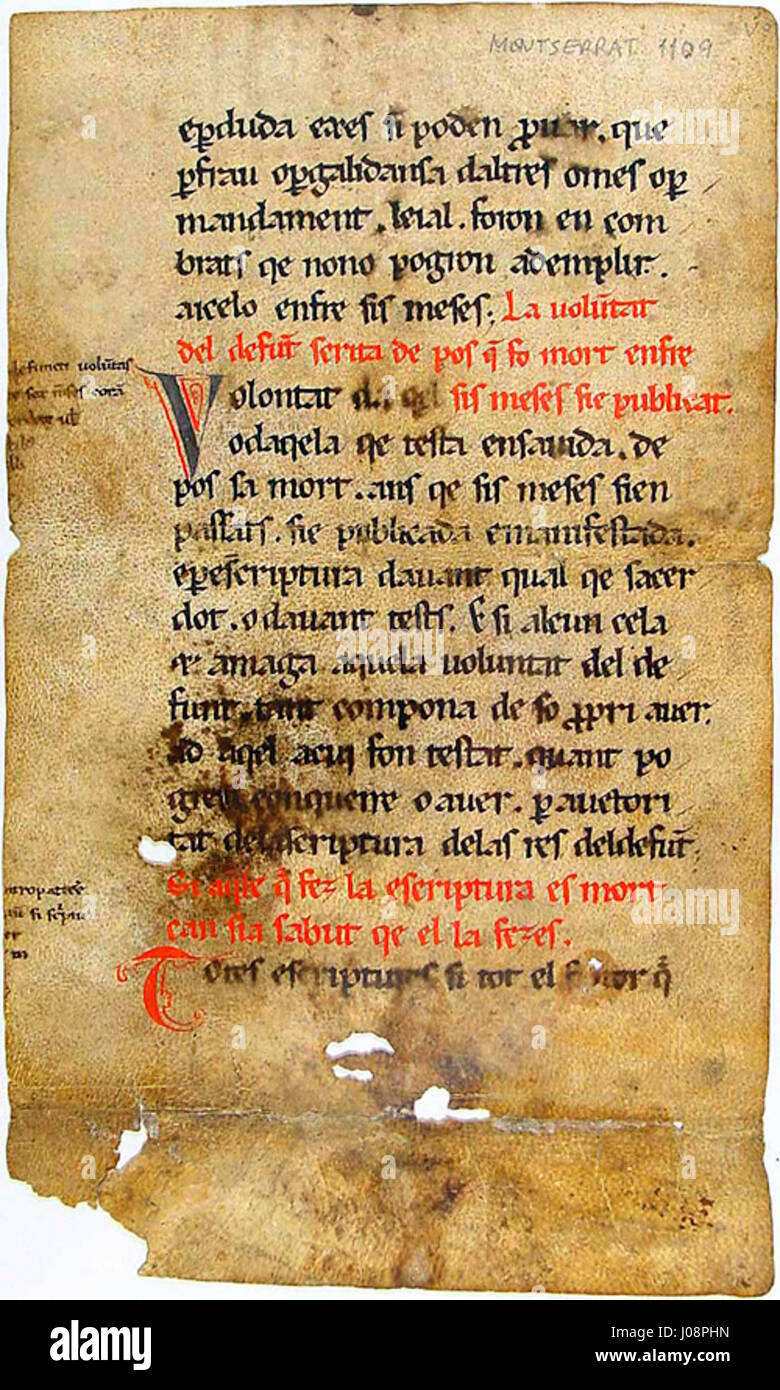 MONTSERRAT 1109
eperduda eres si poden ꝓuar. que
ꝑ frau oꝑ galidansa daltres omes oꝑ
mandament. leial. foron en com
brats qe nono pogron ad emplir.
aicelo enfre sis meses. La volūtat
del defūt scrita de pos q̄ fo mort enfre
Volontat sis meses sie publicat.
o daqela qe testa ensauida. de
pos sa mort. ans qe sis meses sien
passats. sie publicada e manifestada.
eꝑ escriptura dauant qual qe sacer
dot. o dauant tests. E si alcun cela
o amaga aquela uoluntat del de
funt. tant compona de so ꝓpri auer.
ad aqel acui fon testat. quant po
gre conquerre o auer. ꝑ auctori
tat dela scriptura delas res del defūt
Si aq̄le q̄ fez la escriptura es mort
can sia sabut qe el la fezes.
Totes escriptures si tot el q̄
defuncti volūtas
alamy
Image ID: J08PHN
www.alamy.com